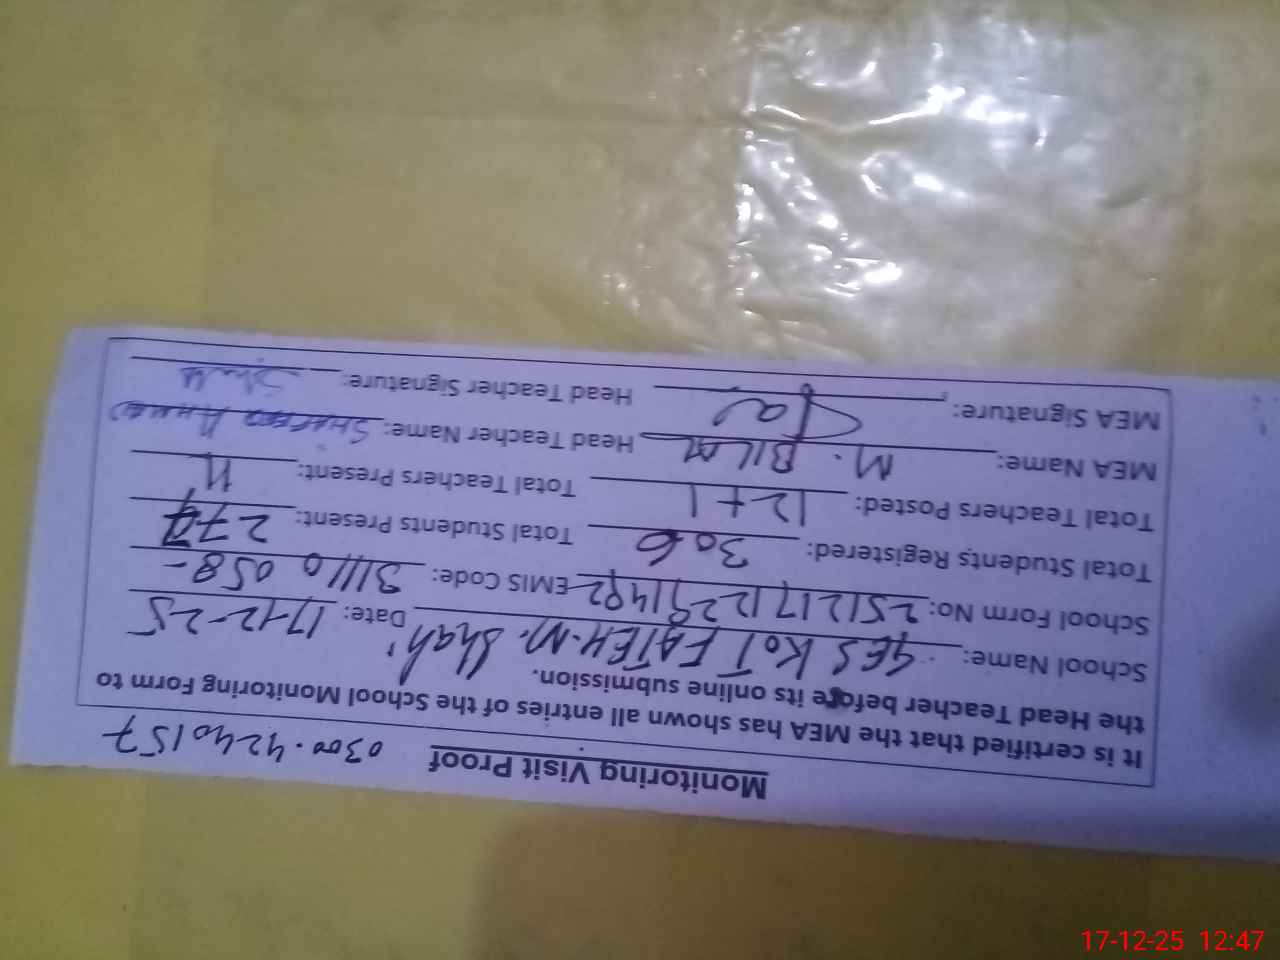 Monitoring Visit Proof 0300-4240157
It is certified that the MEA has shown all entries of the School Monitoring Form to
the Head Teacher before its online submission.
School Name: GES KOT FATEH.M. Shah Date: 17-12-25
School Form No: 25121712291492 EMIS Code: 31110058-
Total Students Registered: 306 Total Students Present: 277
Total Teachers Posted: 12+1 Total Teachers Present: 11
MEA Name: M. Bilal Head Teacher Name:
MEA Signature: Head Teacher Signature:
17-12-25 12:47